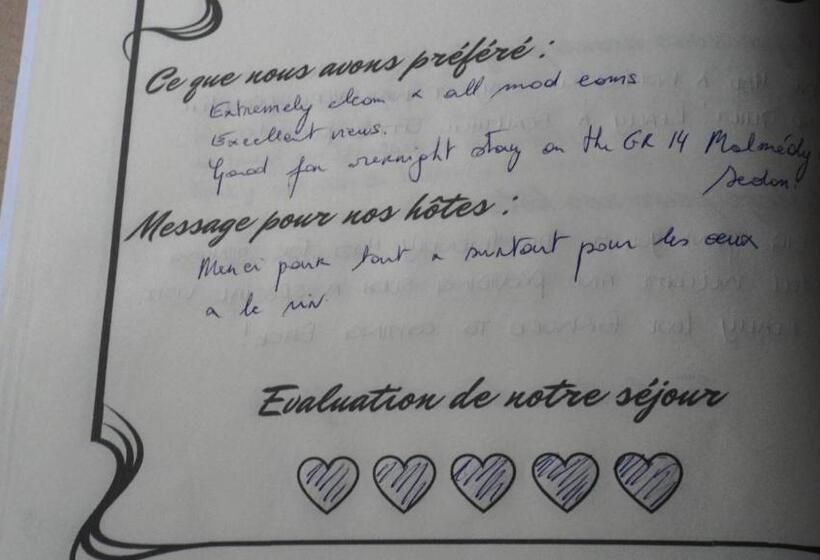 Ce que nous avons préféré :
Extremely clean & all mod coms
Excellent views.
Good for overnight stay on the GR 14 Malmédy
Sedan!
Message pour nos hôtes :
Merci pour tout & surtout pour les œux
& le vin
Evaluation de notre séjour